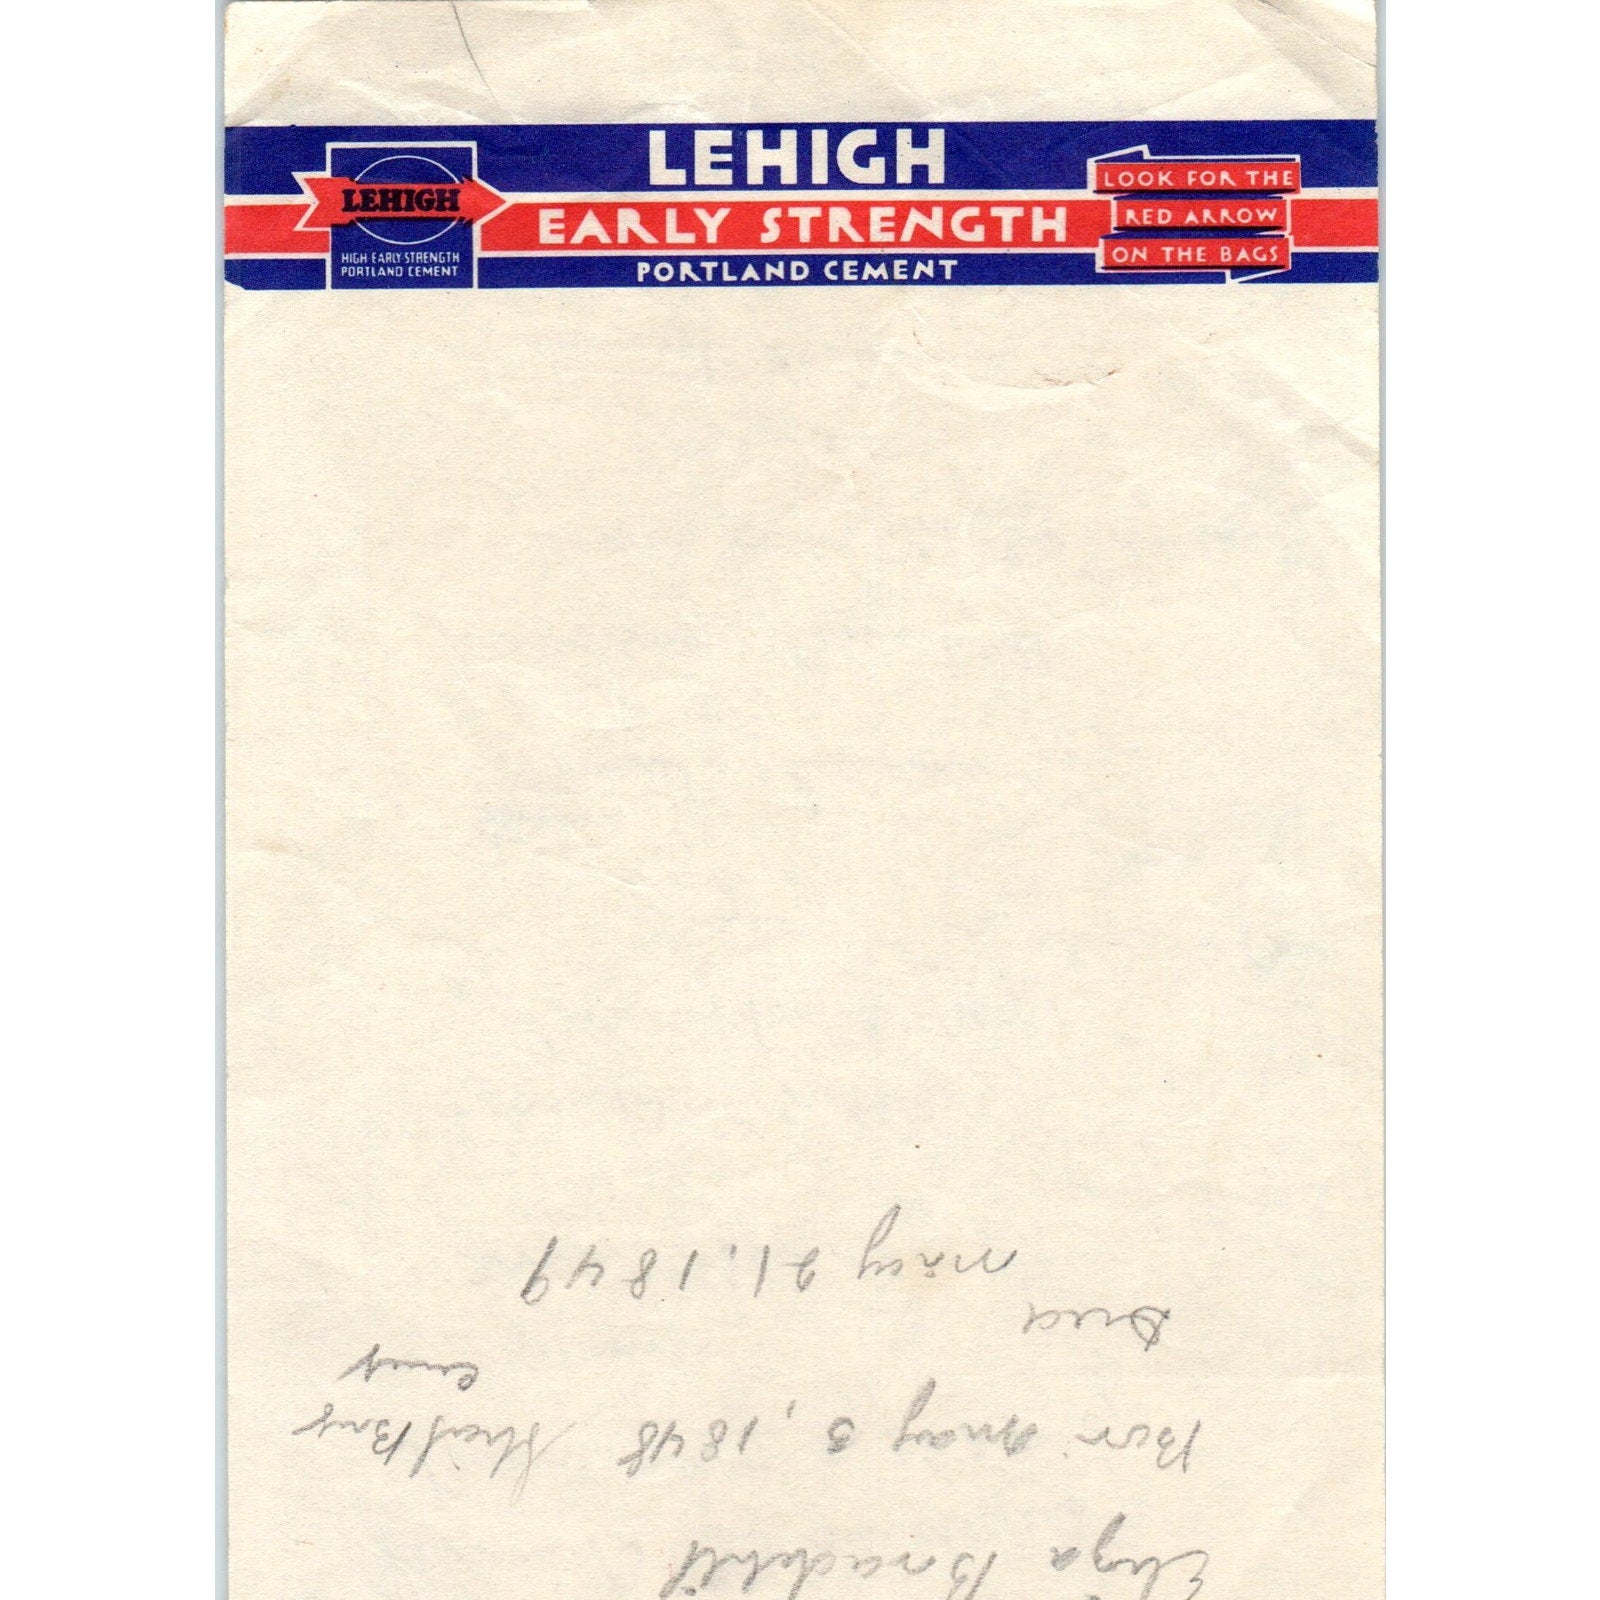 LEHIGH
EARLY STRENGTH
PORTLAND CEMENT
LEHIGH
HIGH EARLY STRENGTH
PORTLAND CEMENT
LOOK FOR THE
RED ARROW
ON THE BAGS
Eliza
Bor May 3, 1848
Died
May 21, 1849